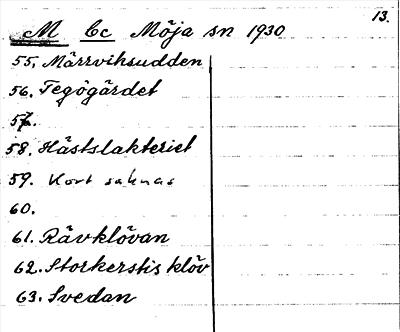 13.
M Cc Möja sn 1930
55. Märrviksudden
56. Tegögärdet
57.
58. Hästslakteriet
59. Kort saknas
60.
61. Rävklövan
62. Storkerstis klöv
63. Svedan